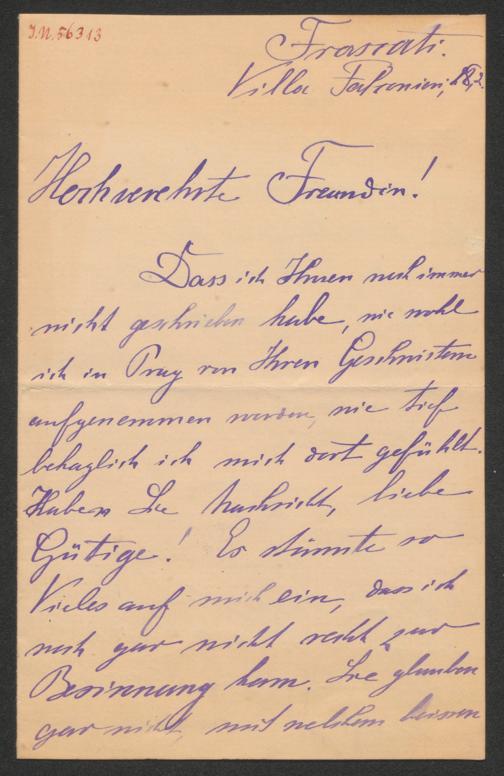 J.N. 56313
Frascati.
Villa Falconieri, 18/2.
Hochverehrte Freundin!
Dass ich Ihnen noch immer
nicht geschrieben habe, wie wohl
ich in Prag von Ihren Geschwistern
aufgenommen worden, wie tief
behaglich ich mich dort gefühlt.
Haben Sie Nachsicht, liebe
Gütige! Es stürmte so
Vieles auf mich ein, dass ich
noch gar nicht recht zur
Besinnung kam. Sie glauben
gar nicht, mit welchem heissen